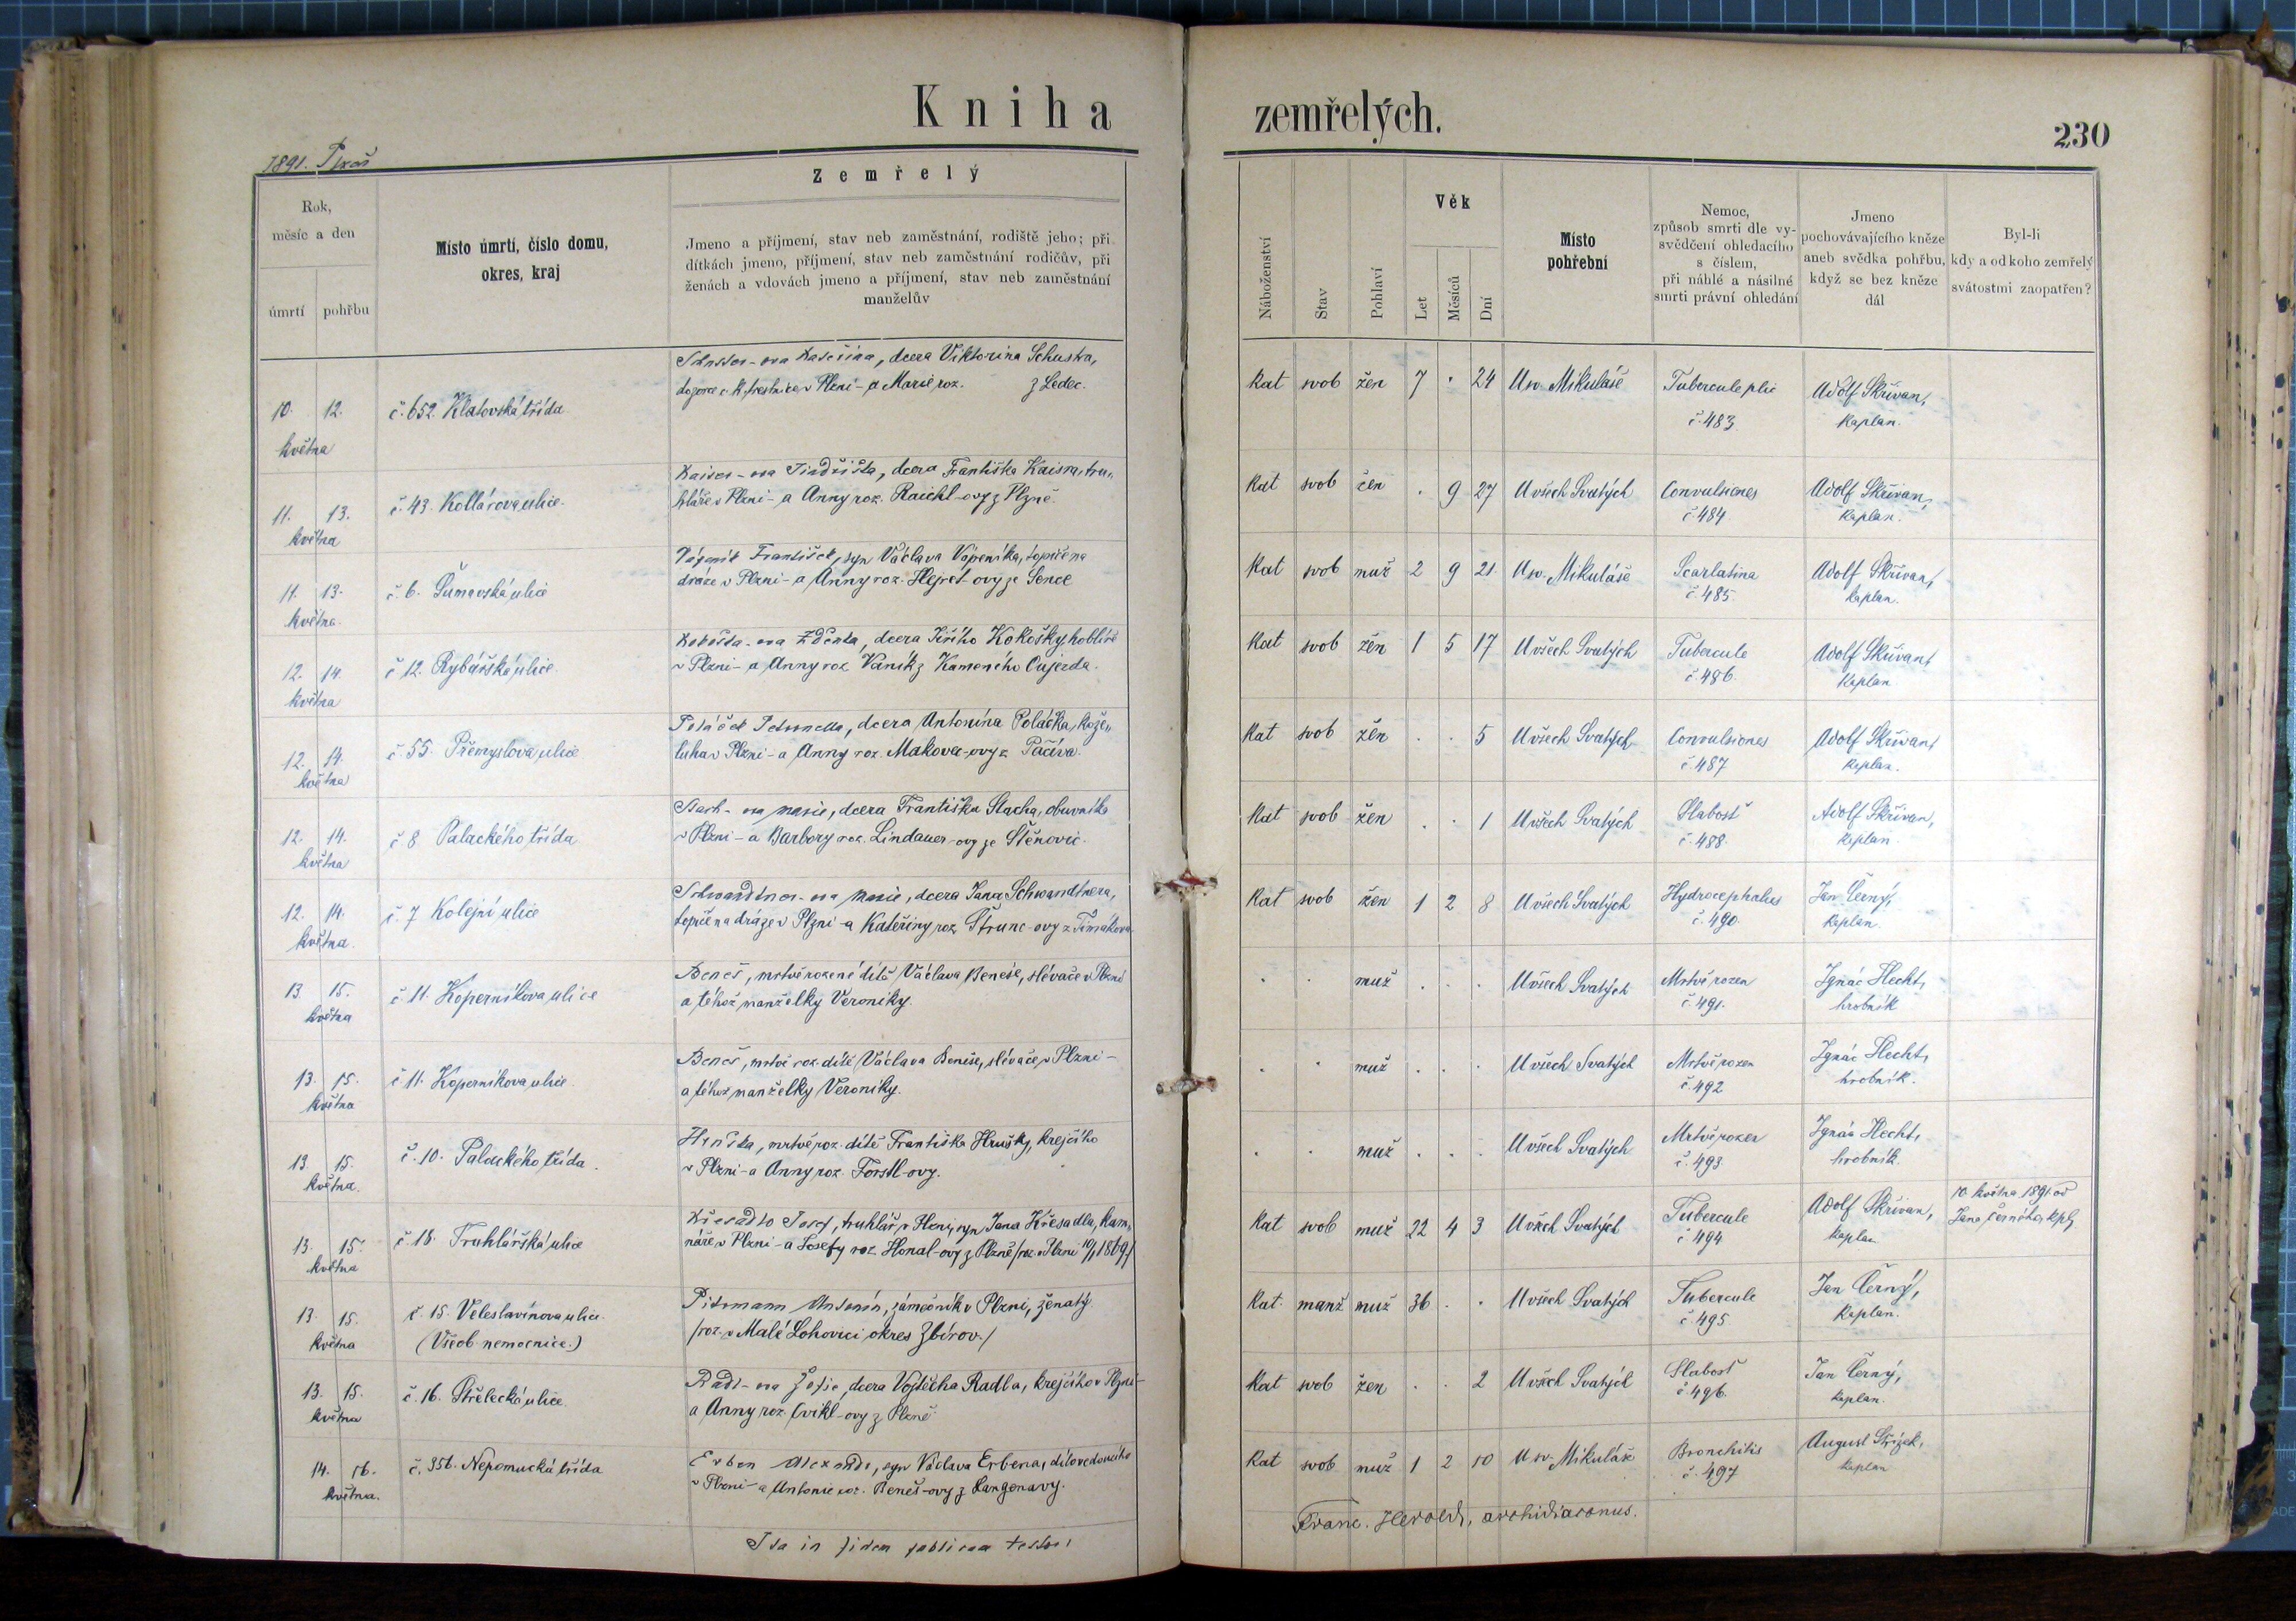 Kniha zemřelých.
230
1891.
Zemřelý
Rok,
měsíc a den
úmrtí
pohřbu
Místo úmrtí, číslo domu,
okres, kraj
Jmeno a příjmení, stav neb zaměstnání, rodiště jeho; při
dítkách jmeno, příjmení, stav neb zaměstnání rodičův, při
ženách a vdovách jmeno a příjmení, stav neb zaměstnání
manželův
Náboženství
Stav
Pohlaví
Věk
Let
Měsíců
Dní
Místo
pohřební
Nemoc,
způsob smrti dle vy-
svědčení ohledacího
s číslem,
při náhlé a násilné
smrti právní ohledání
Jmeno
pochovávajícího kněze
aneb svědka pohřbu,
když se bez kněze
dál
Byl-li
kdy a od koho zemřelý
svátostmi zaopatřen?
10. 12.
května
č. 652. Klatovská třída
Schuster-ova Kateřina, dcera Viktorina Schustra,
dozorce c. k. trestnice v Plzni - a Marie roz. z Ledec.
Kat svob žen 7 . 24 U sv. Mikuláše
Tubercule plic
č. 483.
Adolf Skřivan,
kaplan.
11. 13.
května
č. 43. Kollárova ulice.
Kaiser-ova Jindřiška, dcera Františka Kaisra, tru-
hláře v Plzni - a Anny roz. Raichl-ovy z Plzně.
Kat svob žen . 9 27 U všech Svatých
Convulsiones
č. 484
Adolf Skřivan,
kaplan.
11. 13.
května.
č. 6. Šumavská ulice
Vápeník František, syn Václava Vápeníka, topiče na
dráze v Plzni - a Anny roz. Hejret-ovy ze Sence
Kat svob muž 2 9 21 U sv. Mikuláše
Scarlatina
č. 485.
Adolf Skřivan,
kaplan.
12. 14.
května
č. 12. Rybářská ulice.
Kokoška-ova Zdenka, dcera Jiřího Kokošky hoblíře
v Plzni - a Anny roz. Vaník z Kamenného Oujezda.
Kat svob žen 1 5 17 U všech Svatých
Tubercule
č. 486.
Adolf Skřivan,
kaplan
12. 14.
května
č. 55. Přemyslova ulice
Poláček Petronella, dcera Antonína Poláčka, kože-
luha v Plzni - a Anny roz. Makovec-ovy z
Kat svob žen . . 5 U všech Svatých
Convulsiones
č. 487
Adolf Skřivan,
kaplan.
12. 14.
května
č. 8 Palackého třída
Stach-ova Marie, dcera Františka Stacha, obuvníka
v Plzni - a Barbory roz. Lindauer-ovy ze Štěnovic.
Kat svob žen . . 1 U všech Svatých
Slabost
č. 488.
Adolf Skřivan,
kaplan
12. 14.
května.
č. 7 Kolejní ulice
Schwandtner-ova Marie, dcera Jana Schwandtnera,
topiče na dráze v Plzni - a Kateřiny roz. Štrunc-ovy z Timákova.
Kat svob žen 1 2 8 U všech Svatých
Hydrocephalus
č. 490.
Jan Černý,
kaplan.
13. 15.
května
č. 11. Koperníkova ulice
Beneš, mrtvě rozené dítě Václava Beneše, slévače v Plzni
a téhož manželky Veroniky.
. . muž . . . U všech Svatých
Mrtvě rozen
č. 491.
Ignác Hecht,
hrobník
13. 15.
května
č. 11. Koperníkova ulice.
Beneš, mrtvě roz. dítě Václava Beneše, slévače v Plzni -
a téhož manželky Veroniky.
. . muž . . . U všech Svatých
Mrtvě rozen
č. 492
Ignác Hecht,
hrobník.
13. 15.
května.
č. 10. Palackého třída.
Hruška, mrtvě roz. dítě Františka Hrušky, krejčího
v Plzni - a Anny roz. Forstl-ovy.
. . muž . . . U všech Svatých
Mrtvě rozen
č. 493.
Ignác Hecht,
hrobník.
13. 15.
května
č. 18. Truhlářská ulice
Křesadlo Josef, truhlář v Plzni, syn Jana Křesadla, kam-
náře v Plzni - a Josefy roz. Honal-ovy z Plzně /roz. v Plzni 10/1 1869/
Kat svob muž 22 4 3 U všech Svatých
Tubercule
č. 494
Adolf Skřivan,
kaplan
10. května 1891 od
Jana Černého, kpl.
13. 15.
května
č. 15. Veleslavínova ulice.
(Všeob. nemocnice.)
Pitrmann Antonín, zámečník v Plzni, ženatý
/roz. v Malé Lohovici okres Zbirov./
Kat. manž muž 36 . . U všech Svatých
Tubercule
č. 495.
Jan Černý,
kaplan.
13. 15.
května
č. 16. Střelecká ulice.
Radl-ova Žofie, dcera Vojtěcha Radla, krejčího v Plzni -
a Anny roz. Cvikl-ovy z Plzně
Kat svob žen . . 2 U všech Svatých
Slabost
č. 496.
Jan Černý,
kaplan.
14. 16.
května.
č. 356. Nepomucká třída
Erben Alexandr, syn Václava Erbena, dílovedoucího
v Plzni - a Antonie roz. Beneš-ovy z Langenavy.
Kat svob muž 1 2 10 U sv. Mikuláše
Bronchitis
č. 497
August Střízek,
kaplan
Ita in fidem publicam testor:
Franc. Herold, archidiaconus.